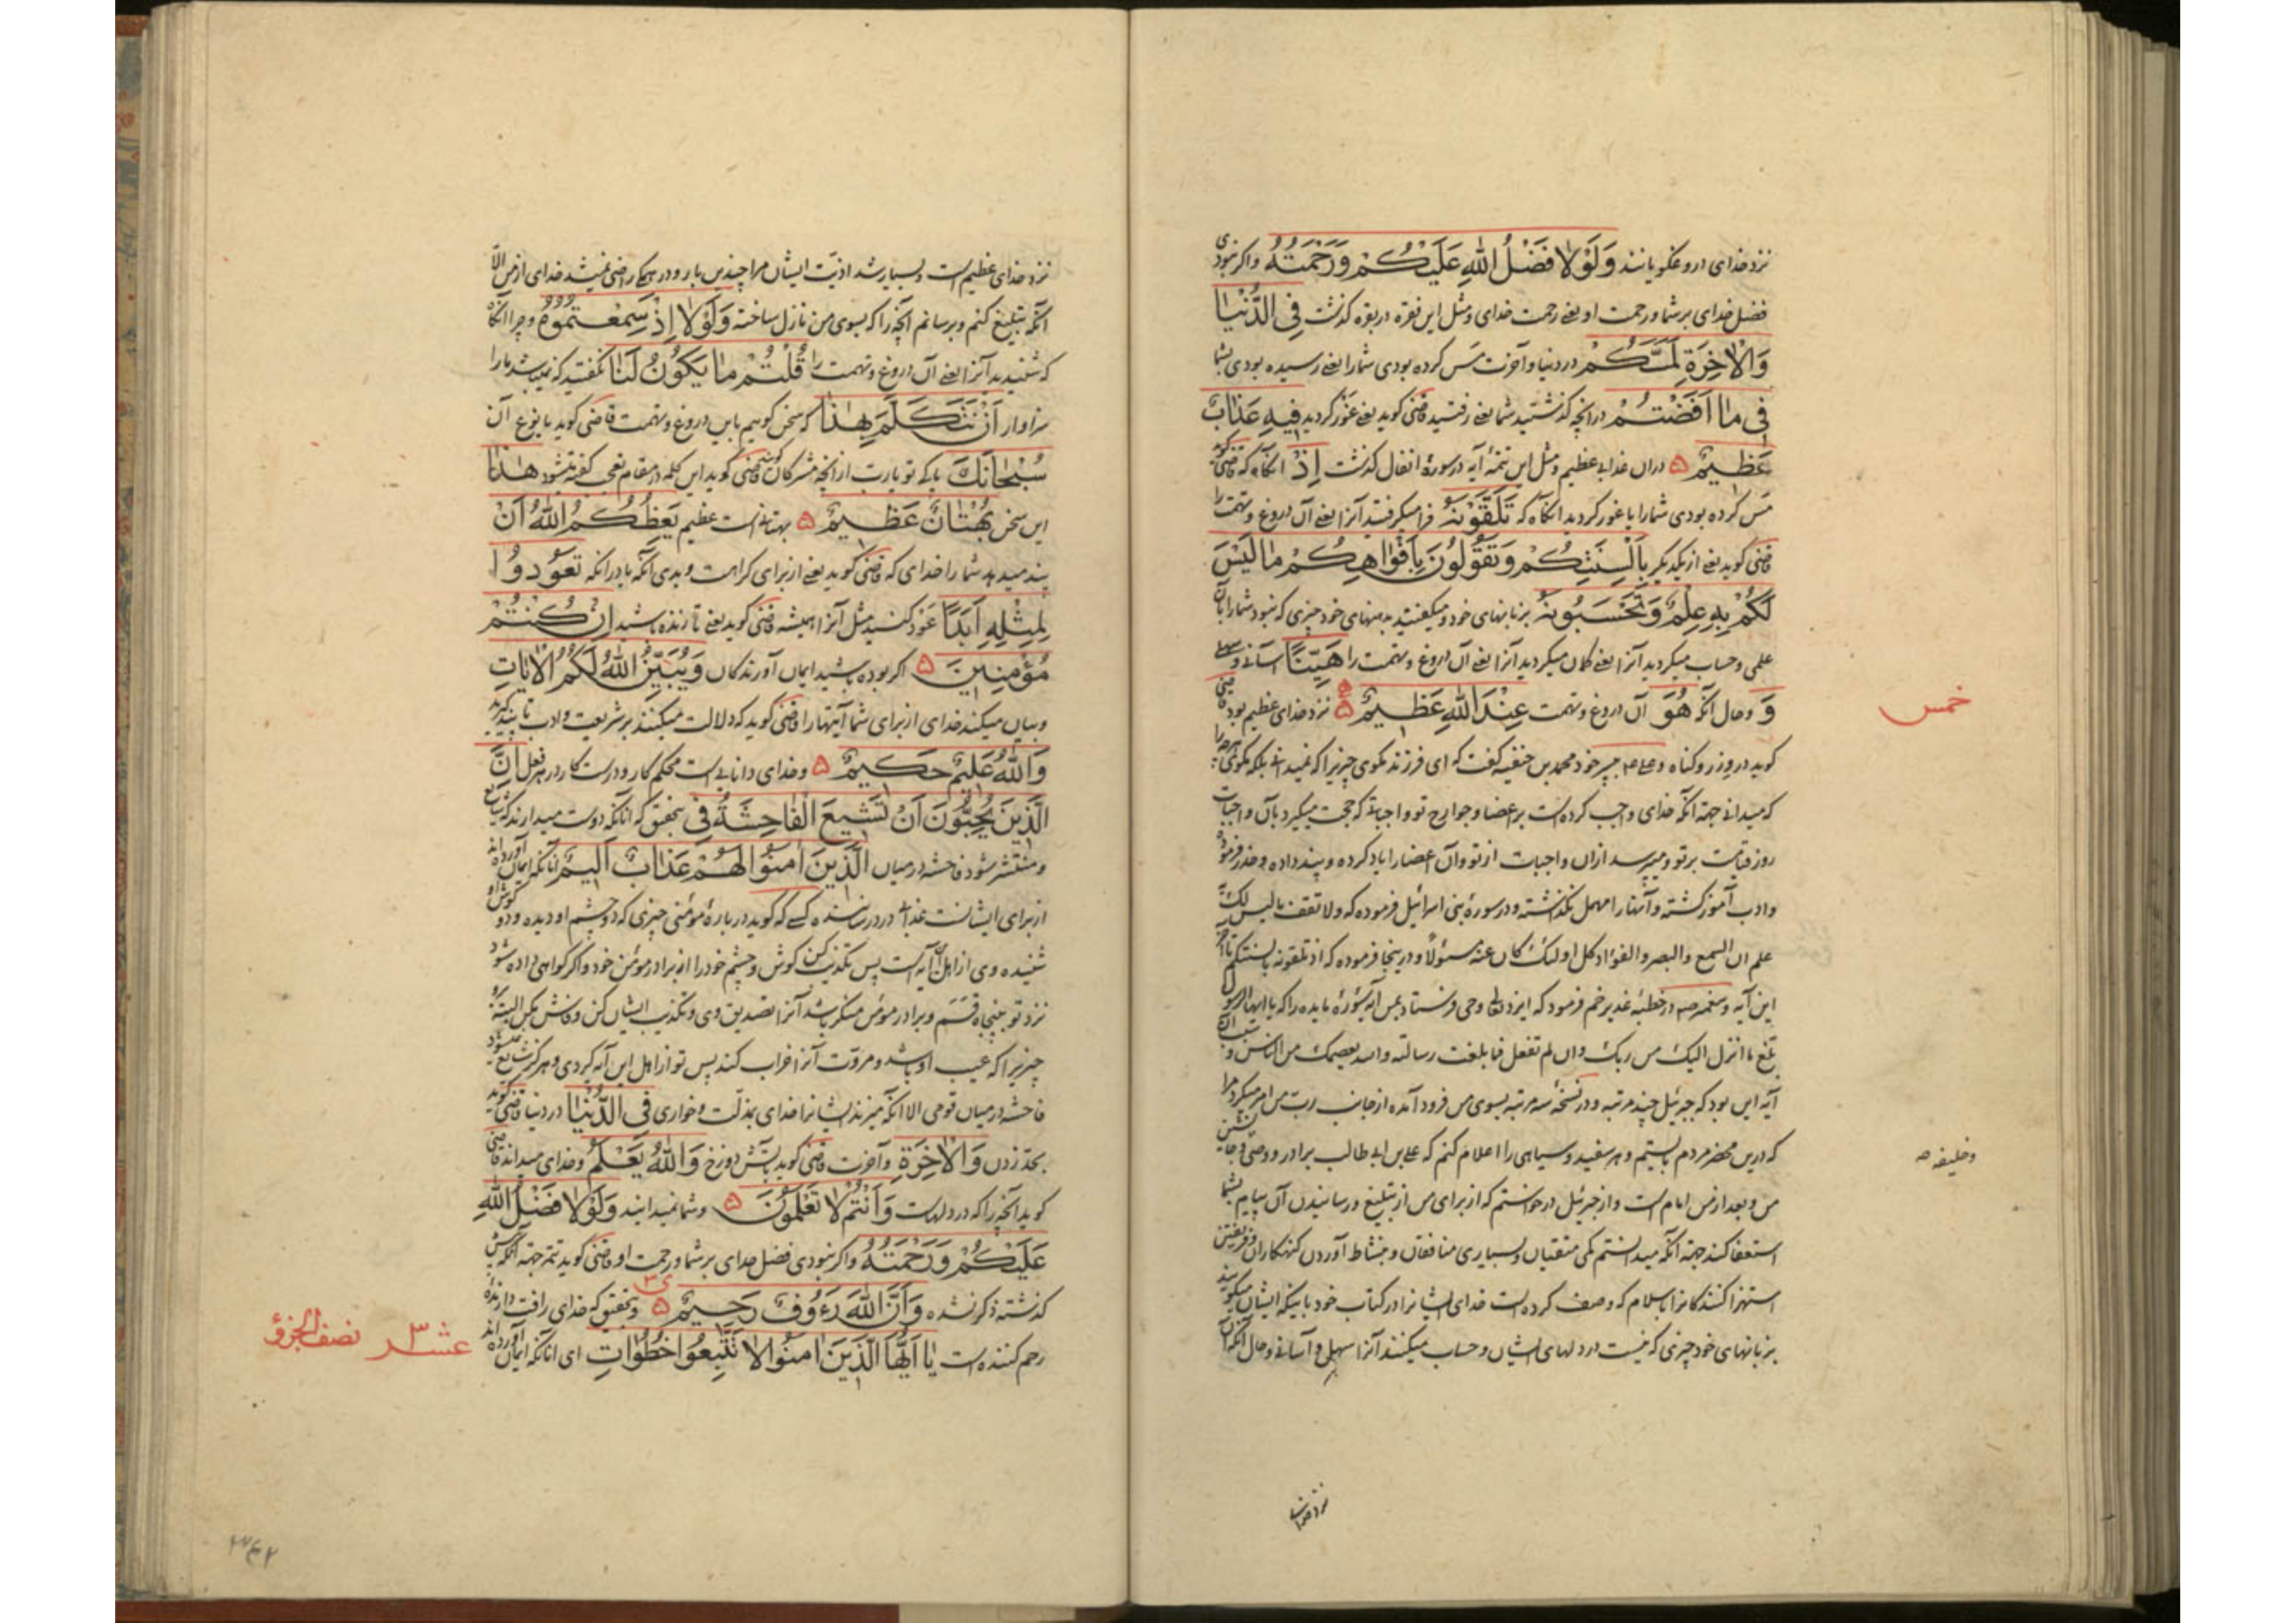 نزد خدای دروغگویانند وَلَوْلا فَضْلُ اللهِ عَلَيْكُمْ وَرَحْمَتُهُ واگر نبودی
فضل خدای بر شما ورحمت او یعنی رحمت خدای ومثل این فقره در بقره گذشت فِي الدُّنْيَا
وَالْاٰخِرَةِ لَمَسَّكُمْ در دنیا وآخرت مس کرده بودی شمارا یعنی رسیده بودی بشما
فِي مَا اَفَضْتُمْ در آنچه گذشتید شما یعنی رفتید قاضی گوید یعنی غور کردید فِيهِ عَذَابٌ
عَظِيمٌ ۵ دران عذابی عظیم ومثل این تتمهٔ آیه در سورهٔ انفال گذشت اِذْ آنگاه که قاضی گوید
مس کرده بودی شمارا یا غور کردید آنگاه که تَلَقَّوْنَهُ فرا میگرفتید آنرا یعنی آن دروغ وتهمت را
قاضی گوید یعنی از یکدیگر بِاَلْسِنَتِكُمْ وَتَقُولُونَ بِاَفْوَاهِكُمْ مَا لَيْسَ
لَكُمْ بِهِ عِلْمٌ وَتَحْسَبُونَهُ بزبانهای خود ومیگفتید بدهنهای خود چیزی که نبود شمارا بآن
علمی وحساب میکردید آنرا یعنی گمان میکردید آنرا یعنی آن دروغ وتهمت را هَيِّنًا آسانی وسهلی
وَ وحال آنکه هُوَ آن دروغ وتهمت عِنْدَ اللهِ عَظِيمٌ ۵ نزد خدای عظیم بود قاضی
خمس
گوید در وزر وگناه وعلی ع م بپسر خود محمد بن حنفیه گفت که ای فرزند مگوی چیزیرا که نمیدانی بلکه مگوی هرچه را
که میدانی جهة آنکه خدای واجب کرده است بر اعضا وجوارح تو واجباتی که حجت میگیرد بآن واجبات
روز قیامت بر تو ومیپرسد ازان واجبات از تو وآن اعضا را یاد کرده وپند داده وحذر فرموده
وادب آموز گشته وآنها را مهمل نگذاشته ودر سورهٔ بنی اسرائیل فرموده که ولا تقف ما لیس لک به
علم ان السمع والبصر والفؤاد کل اولئک کان عنه مسئولا ودرینجا فرموده که اذ تلقونه بالسنتکم تا آخر
این آیه وپیغمبر ص در خطبهٔ غدیر خم فرمود که ایزد تعالی وحی فرستاد بمن آیه سورهٔ مایده را که یا ایها الرسول
بلغ ما انزل الیک من ربک وان لم تفعل فما بلغت رسالته والله یعصمک من الناس وسبب این
آیه این بود که جبرئیل چند مرتبه ودر نسخهٔ سه مرتبه بسوی من فرود آمده از جانب رب من امر میکرد مرا
که درین محضر مردم بایستم وهر سفید وسیاهی را اعلام کنم که علی بن ابی طالب برادر ووصی وجانشین
وخلیفه ص
من وبعد از من امام است واز جبرئیل درخواستم که از برای من از تبلیغ ورسانیدن آن پیام بشما
استعفا کند جهة آنکه میدانستم کمی متقیان وبسیاری منافقان ونشاط آوردن گنهکاران وفریفتن
استهزا کنندگانرا باسلام که وصف کرده است خدای ایشانرا در کتاب خود باینکه ایشان میگویند
بزبانهای خود چیزی که نیست در دلهای ایشان وحساب میکنند آنرا سهل وآسانی وحال آنکه آن
نزد خدای
نزد خدای عظیم است وبسیار شد اذیت ایشان مرا چندین بار ودر همگی راضی نمیشد خدای از من الا
آنکه تبلیغ کنم وبرسانم آنچه را که بسوی من نازل ساخته وَلَوْلا اِذْ سَمِعْتُمُوهُ وچرا آنگاه
که شنیدید آنرا یعنی آن دروغ وتهمت را قُلْتُمْ مَا يَكُونُ لَنَا نگفتید که نمیباشد مارا
سزاوار اَنْ نَتَكَلَّمَ بِهٰذَا که سخن گوییم باین دروغ وتهمت قاضی گوید یا بنوع آن
سُبْحَانَكَ پاکی تو یارب از آنچه مشرکان گویند قاضی گوید این کلمه در مقام تعجب گفته میشود هٰذَا
این سخن بُهْتَانٌ عَظِيمٌ ۵ بهتانی است عظیم يَعِظُكُمُ اللهُ اَنْ
پند میدهد شما را خدای که قاضی گوید یعنی از برای کراهت وبدی آنکه یا در آنکه تَعُودُوا
لِمِثْلِهِ اَبَدًا عود کنید مثل آنرا همیشه قاضی گوید یعنی تا زنده باشید اِنْ كُنْتُمْ
مُؤْمِنِينَ ۵ اگر بوده باشید ایمان آورندگان وَيُبَيِّنُ اللهُ لَكُمُ الْاٰيَاتِ
وبیان میکند خدای از برای شما آیتها را قاضی گوید که دلالت میکنند بر شریعت وادب تا پند گیرید
وَاللهُ عَلِيمٌ حَكِيمٌ ۵ وخدای دانایی است محکم کار ودرست کار در هر فعل اِنَّ
الَّذِينَ يُحِبُّونَ اَنْ تَشِيعَ الْفَاحِشَةُ فِي بتحقیق که آنانکه دوست میدارند که شایع
ومنتشر شود فاحشه در میان الَّذِينَ اٰمَنُوا لَهُمْ عَذَابٌ اَلِيمٌ آنانکه ایمان آورده اند
از برای ایشانست عذابی درد رساننده کسی که گوید در بارهٔ مؤمنی چیزی که دو چشم او دیده ودو گوش او
شنیده وی از اهل این آیه است پس تکذیب کن گوش وچشم خود را از برادر مؤمن خود واگر گواهی داده شود
نزد تو پنجاه قسم وبرادر مؤمن منکر باشد آنرا تصدیق وی وتکذیب ایشان کن وفاش مکن البته
چیزیرا که عیب او باشد ومروت آنرا خراب کند پس تو از اهل این آیه گردی وهرگز شایع نمیشود
فاحشه در میان قومی الا آنکه میزند ایشانرا خدای بذلت وخواری فِي الدُّنْيَا در دنیا قاضی گوید
بحد زدن وَالْاٰخِرَةِ وآخرت قاضی گوید بآتش دوزخ وَاللهُ يَعْلَمُ وخدای میداند قاضی
گوید آنچه را که در دلهاست وَاَنْتُمْ لا تَعْلَمُونَ ۵ وشما نمیدانید وَلَوْلا فَضْلُ اللهِ
عَلَيْكُمْ وَرَحْمَتُهُ واگر نبودی فضل خدای بر شما ورحمت او قاضی گوید تتمه جهة آنکه پیش
گذشته ذکر نشده وَاَنَّ اللهَ رَءُوفٌ رَحِيمٌ ۵ وبتحقیق که خدای رافت دارنده
رحم کننده است يَا اَيُّهَا الَّذِينَ اٰمَنُوا لا تَتَّبِعُوا خُطُوَاتِ ای آنانکه ایمان آورده اند
عشر نصف الجزؤ